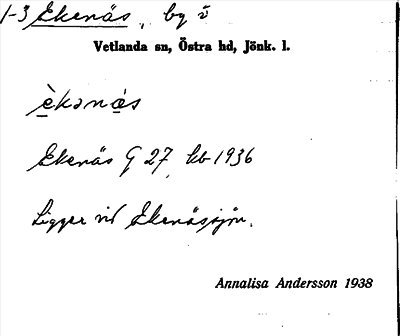 1-3 Ekenäs, by
Vetlanda sn, Östra hd, Jönk. l.
èkənás
Ekenäs G 27, kb 1936
Ligger vid Ekenässjön.
Annalisa Andersson 1938